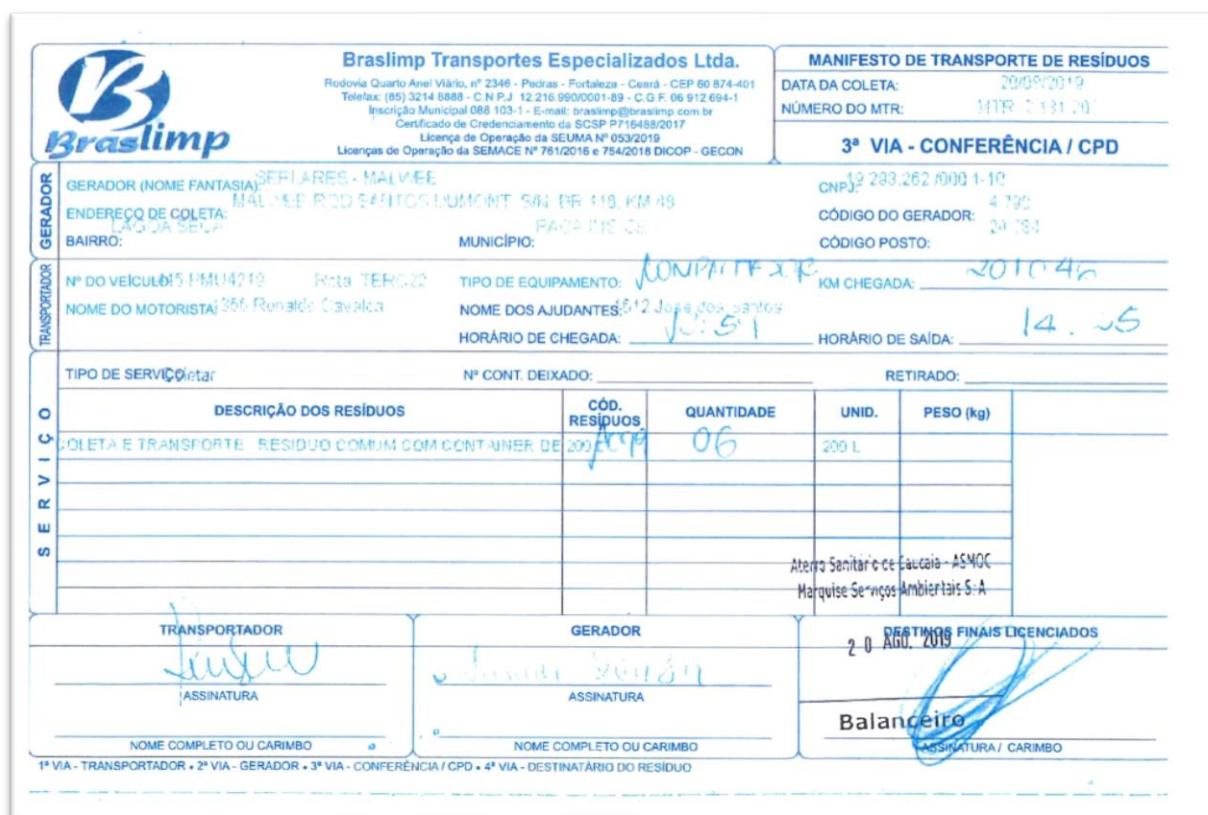 Braslimp
Braslimp Transportes Especializados Ltda.
Rodovia Quarto Anel Viário, nº 2346 - Pedras - Fortaleza - Ceará - CEP 60 874-401
Telefax: (85) 3214 8888 - C.N.P.J. 12.216.990/0001-89 - C.G.F. 06 912 694-1
Inscrição Municipal 088 103-1 - E-mail: braslimp@braslimp.com.br
Certificado de Credenciamento da SCSP P716488/2017
Licença de Operação da SEUMA Nº 053/2019
Licenças de Operação da SEMACE Nº 761/2016 e 754/2018 DICOP - GECON
MANIFESTO DE TRANSPORTE DE RESÍDUOS
DATA DA COLETA:
NÚMERO DO MTR:
3ª VIA - CONFERÊNCIA / CPD
GERADOR
GERADOR (NOME FANTASIA): - MALWEE
CNPJ:
ENDEREÇO DE COLETA: MALWEE ROD SANTOS DUMONT S/N BR 116, KM 49
CÓDIGO DO GERADOR:
BAIRRO: LAGOA SECA
MUNICÍPIO:
CÓDIGO POSTO:
TRANSPORTADOR
Nº DO VEÍCULO: Rota
TIPO DE EQUIPAMENTO:
KM CHEGADA:
NOME DO MOTORISTA: Ronaldo
NOME DOS AJUDANTES: Jose dos Santos
HORÁRIO DE CHEGADA:
HORÁRIO DE SAÍDA: 14
SERVIÇO
TIPO DE SERVIÇO: Coletar
Nº CONT. DEIXADO:
RETIRADO:
DESCRIÇÃO DOS RESÍDUOS CÓD. RESÍDUOS QUANTIDADE UNID. PESO (kg)
COLETA E TRANSPORTE RESIDUO COMUM COM CONTAINER DE 200 06 200 L
Aterro Sanitário de Caucaia - ASMOC
Marquise Serviços Ambientais S.A
TRANSPORTADOR
ASSINATURA
NOME COMPLETO OU CARIMBO
GERADOR
ASSINATURA
NOME COMPLETO OU CARIMBO
DESTINOS FINAIS LICENCIADOS
20 AGO. 2019
Balanceiro
ASSINATURA / CARIMBO
1ª VIA - TRANSPORTADOR • 2ª VIA - GERADOR • 3ª VIA - CONFERÊNCIA / CPD • 4ª VIA - DESTINATÁRIO DO RESÍDUO